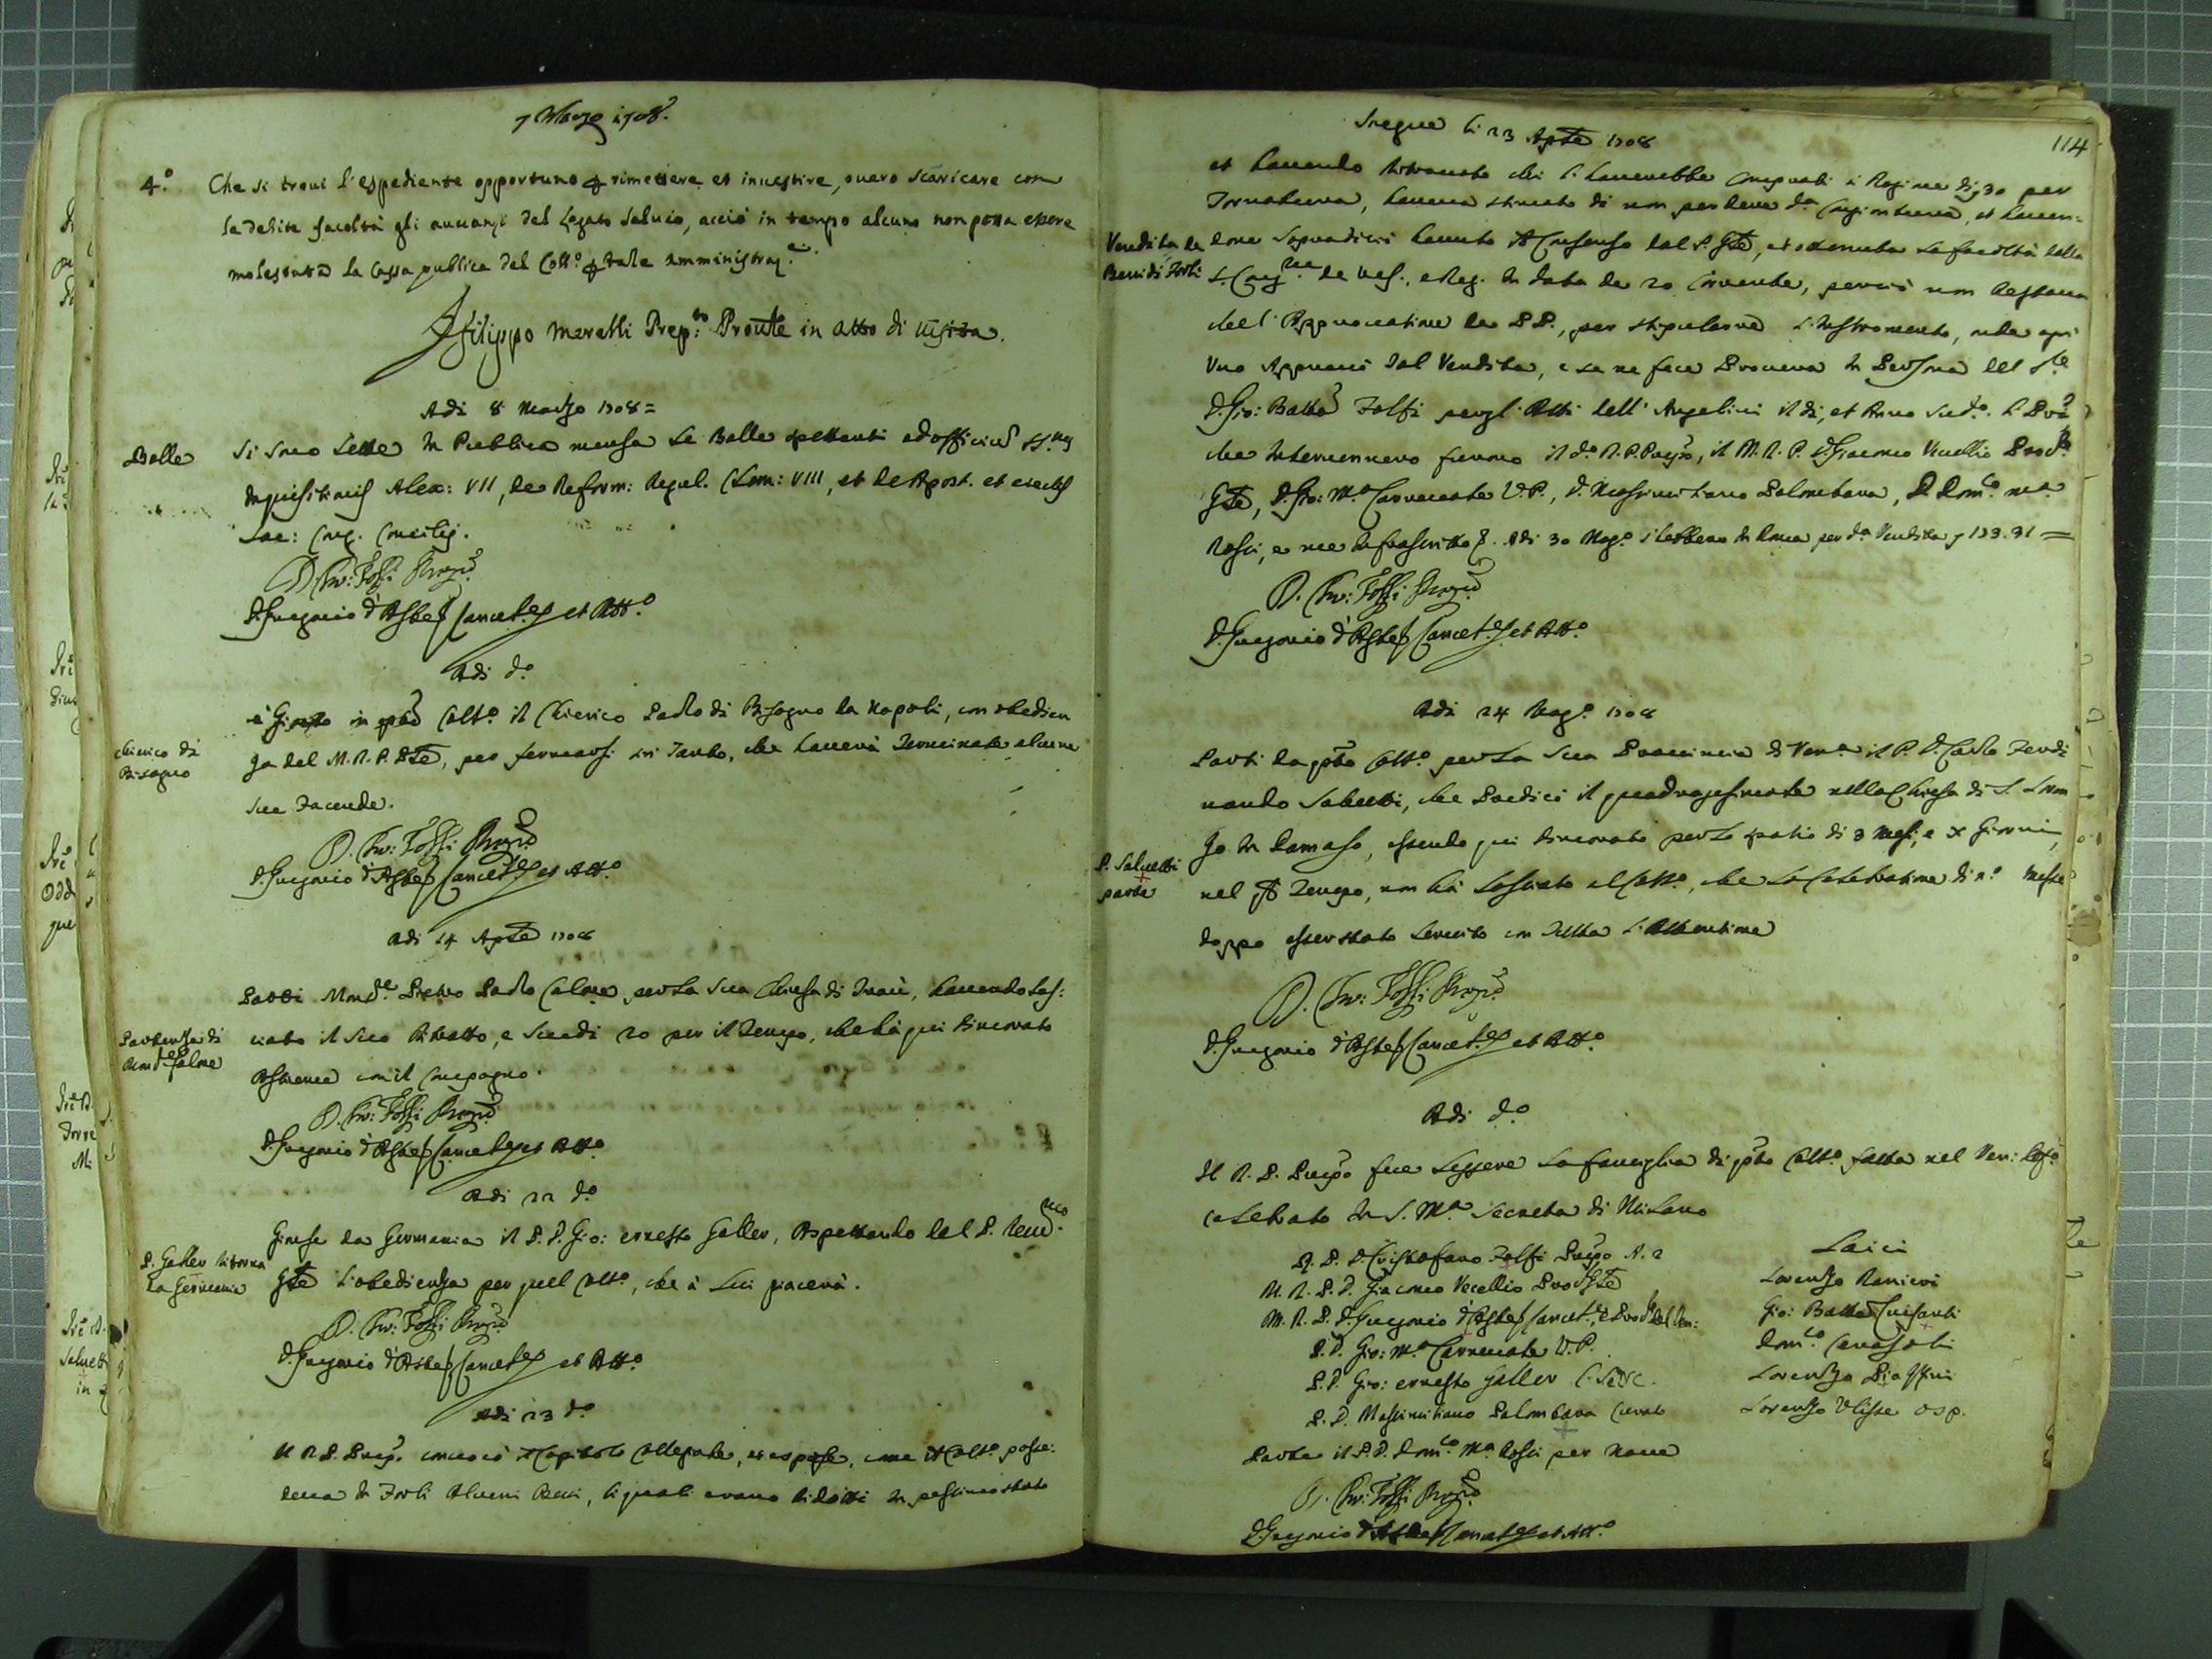 7 Marzo 1708.
4.° Che si trovi l'espediente opportuno per rimettere et investire, overo scaricare con
le debite facoltà gli avvanzi del Legato Salvio, acciò in tempo alcuno non possa essere
molestata la Cassa publica del Coll.° per tale amministraz.e
Filippo Moretti Prep.to Prov.le in atto di visita.
Adi 8 Marzo 1708 =
Bolle
Si sono lette in Publica mensa le Bolle spettanti ad officium
Inquisitionis Alex: VII, de Reform: Regul. Clem: VIII, et de Apost. et
Sac: Cong. Concilij.
D. Cri: Folfi Prep.to
D. Gregorio d'Aste Cancel. et Att.°
Adi d.°
chierico di
Bisogno
è Gionto in Coll.° il Chierico Paolo di Bisogno da Napoli, con obedien
za del M.R.P. Gñle, per fermarsi sin tanto, che haverà terminate alcune
sue facende.
D. Cri: Folfi Prep.to
D. Gregorio d'Aste Cancel. et Att.°
Adi 14 Aprile 1708
Partenza di
Mons.e Calore
Parti Mons.e Pietro Paolo Calore per la sua Chiesa di Traù, havendo las:
ciato il suo Ritratto, e Scudi 20 per il tempo, che hà qui dimorato
assieme con il Compagno.
D. Cri: Folfi Prep.to
D. Gregorio d'Aste Cancel. et Att.°
Adi 22 d.°
P. Galler ritorna
da Germania
Giunse da Germania il P.D. Gio: ernesto Galler, Aspettando dal P. Rev.mo
Gñle l'obedienza per quel Coll.°, che à Lui piacerà.
D. Cri: Folfi Prep.to
D. Gregorio d'Aste Cancel. et Att.°
Adi 23 d.°
Il R.P. Prep.to convocò il Capitolo Collegiale, et espose, come il Coll.° posse:
deva in Forlì Alcuni Beni, li quali erano ridotti in pessimo stato
114
Segue li 23 Aprile 1708
et havendo ritrovato chi li haverebbe comprati à Ragione di 30 per
Tornatura, haveva stimato di non perdere d.a Congiontura, et haven=
Vendita de
Beni di Forlì
done Sopradiciò havuto il Consenso dal P. Gñle, et ottenuta la facoltà dalla
S. Cong.ne de Vesc., e Reg. in data de 20 Corrente, perciò non Restava
che l'Approvatione de PP., per stipularne l'Instromento, onde ogni
Uno Approvò tal Vendita, e se ne fece Procura in Persona del S.re
D. Gio: Batta Folfi per gl'Atti dell'Angelini il dì, et Anno sud.°. Li PP.
che intervennero furono il d.° R.P. Prep.to, il M.R.P. D. Giacomo Vecellio Proc.re
Gñle, D. Gio: M.a Carrerata V.P., D. Massimiliano Palombara, D. Dom.co M.a
Rossi, e me infrascritto. Adi 30 Mag.° si hebbero in Roma per d.a Vendita 133.31 =
D. Cri: Folfi Prep.to
D. Gregorio d'Aste Cancel. et Att.°
Adi 24 Mag.° 1708
P. Salvetti
parte
Parti da q.sto Coll.° per la sua Provincia di Ven.a il P.D. Carlo Ferdi
nando Salvetti, che Predicò il quadragesimale nella Chiesa di S. Loren
zo in Damaso, essendo qui dimorato per lo spatio di 3 Mesi, e X Giorni,
nel qual Tempo, non hà lasciato al Coll.°, che la Celebratione di n.° Messe
doppo esser stato servito con tutta l'Attentione
D. Cri: Folfi Prep.to
D. Gregorio d'Aste Cancel. et Att.°
Adi d.°
Il R.P. Prep.to fece leggere la famiglia di q.sto Coll.° fatta nel Ven: Def.°
Celebrato in S. M.a Secreta di Milano
R. P. D. Cristofano Folfi Prep.to A. 2
M. R. P. D. Giacomo Vecellio Proc. Gñle
M. R. P. D. Gregorio d'Aste Cancel., e Proc. del Ven:
P. D. Gio: M.a Carrerata V.P.
P. D. Gio: ernesto Galler
P. D. Massimiliano Palombara Curato
Laici
Lorenzo Ranieri
Gio: Batta Crusanti
Dom.co Cavasoli
Lorenzo Piaggini
Lorenzo Ulisse osp.
Parte il P.D. Dom.co M.a Rossi per
D. Cri: Folfi Prep.to
D. Gregorio d'Aste Cancel. et Att.°